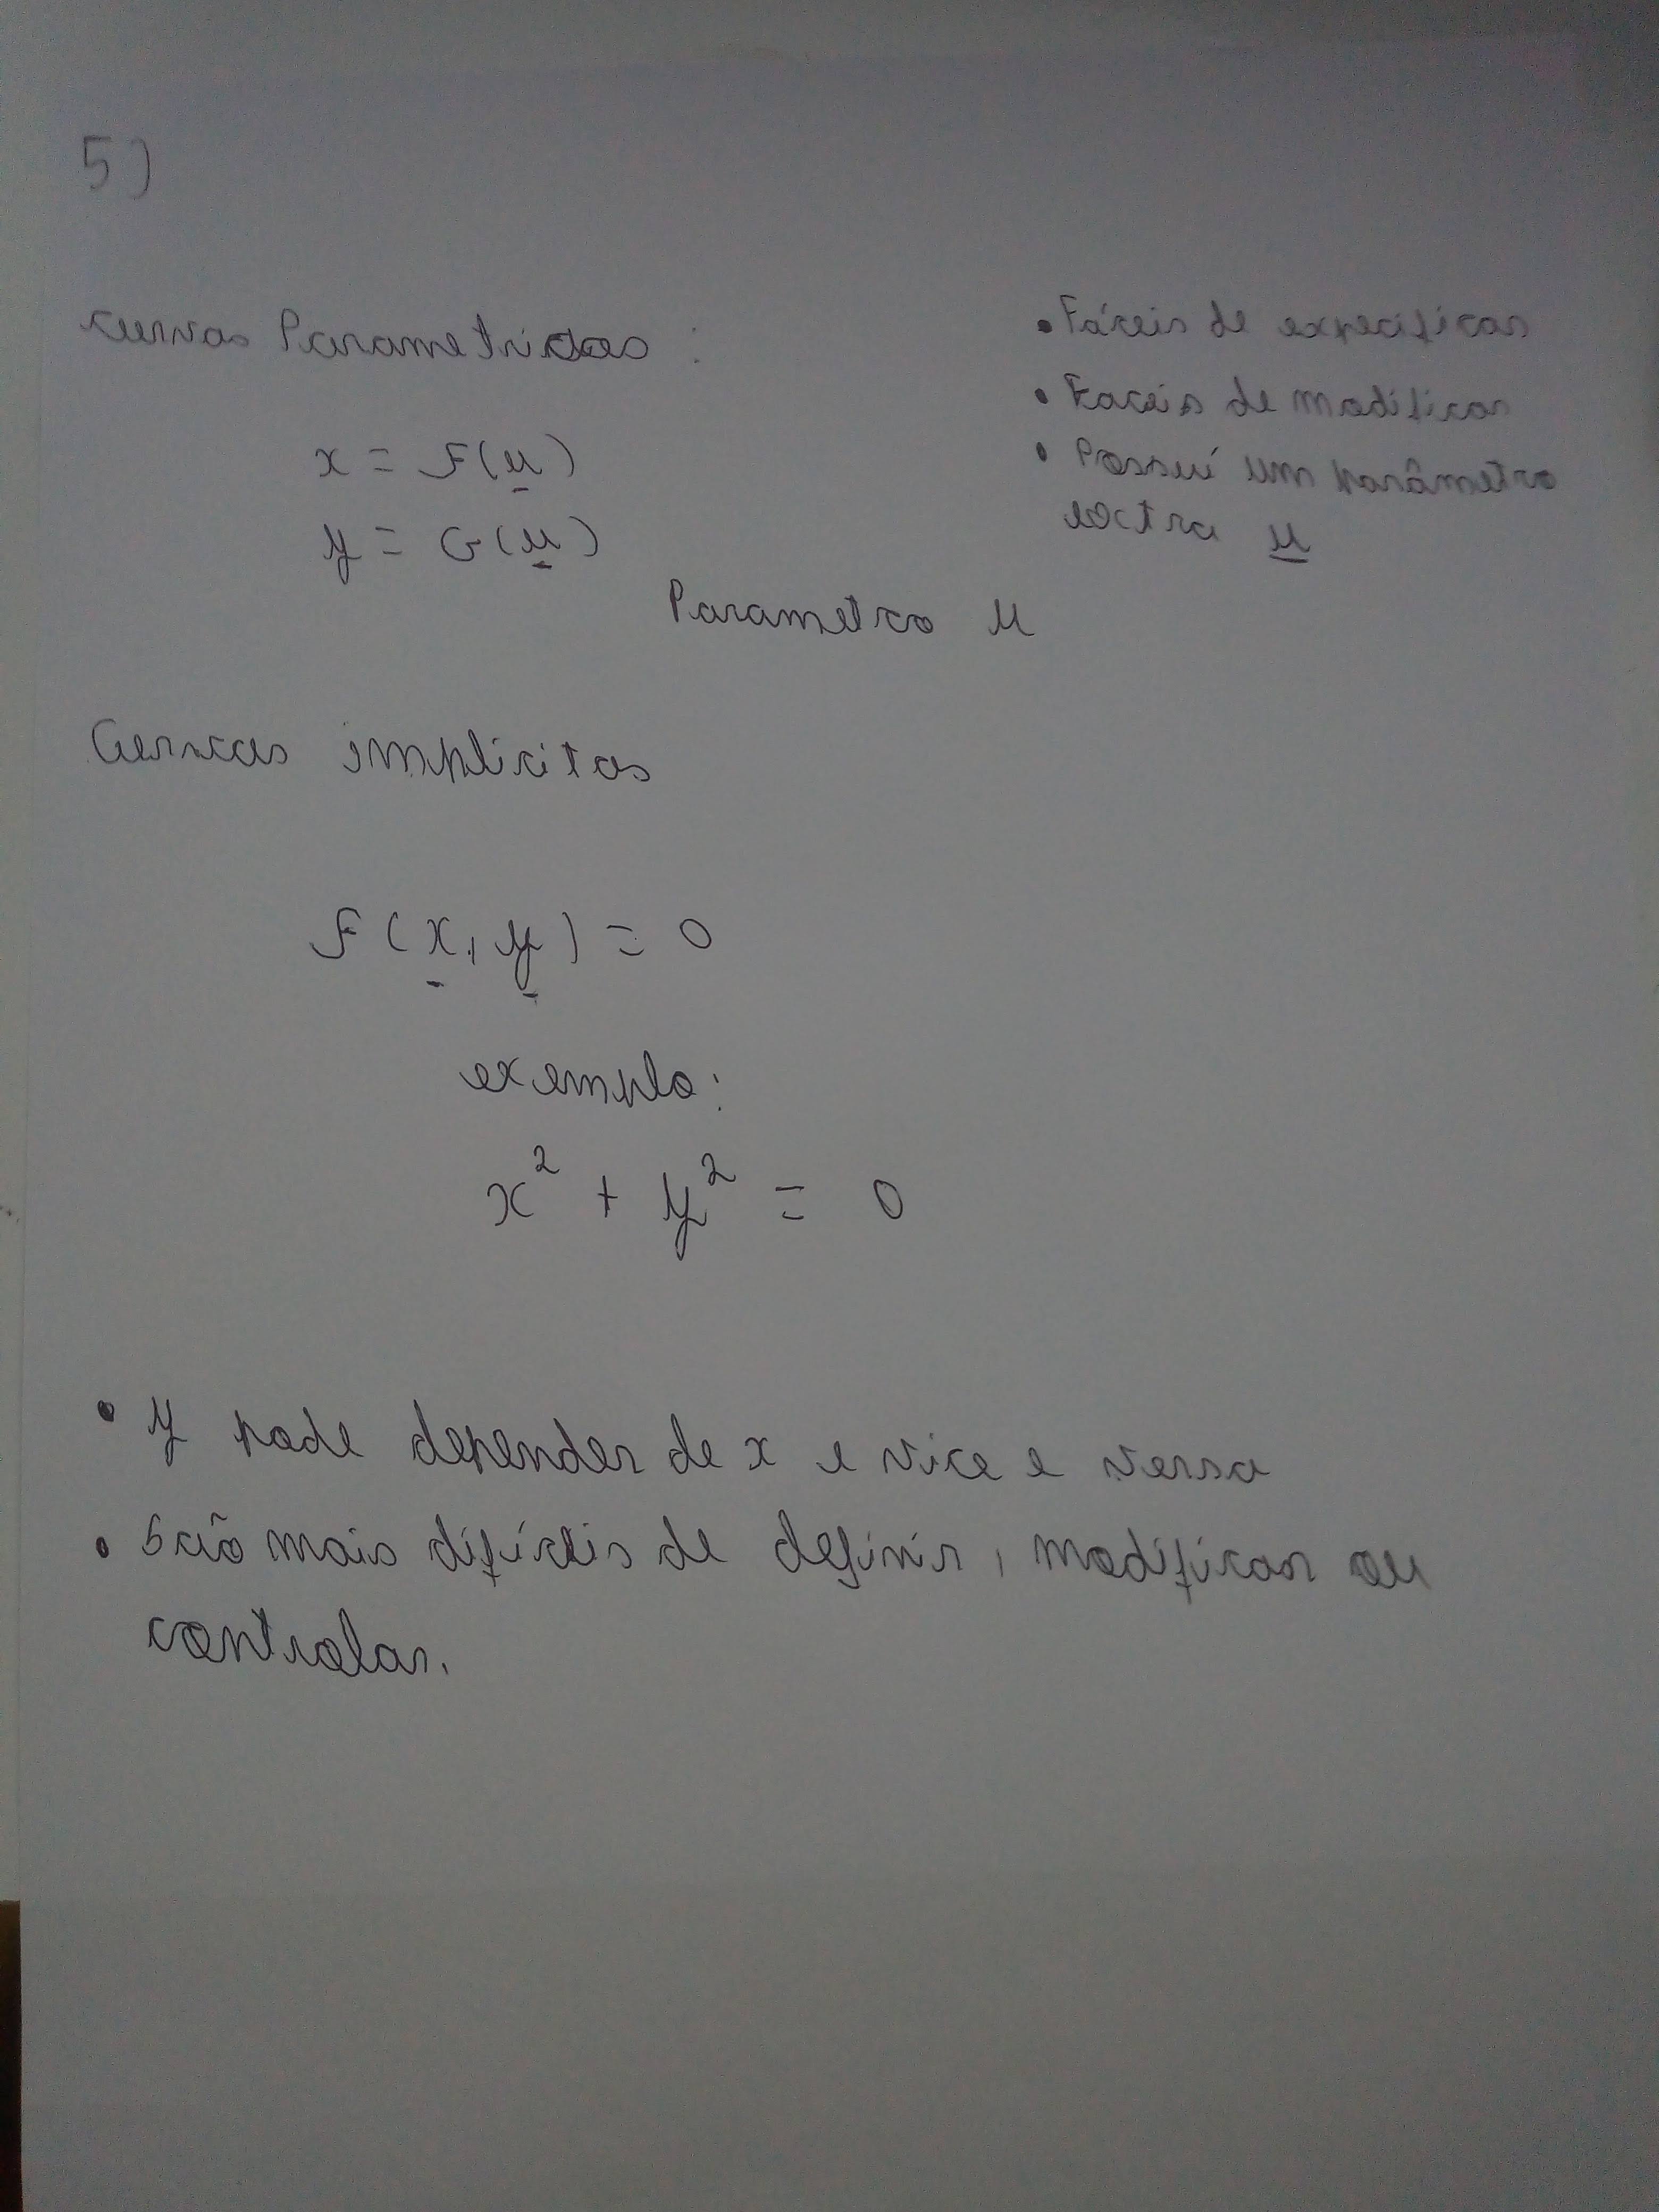 5)
curvas Parametricas :
• Fáceis de expecificar
• Faceis de modificar
• Possui um parâmetro
extra u
x = F(u)
y = G(u)
Parametro u
Curvas implícitas
F(x, y) = 0
exemplo:
x² + y² = 0
• y pode depender de x e vice e versa
• São mais difíceis de definir, modificar ou
controlar.